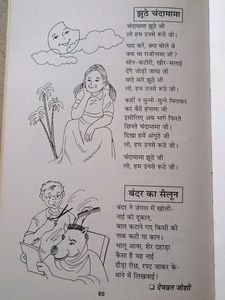 झूठे चंदामामा
चंदामामा झूठे जी
लो, हम उनसे रूठे जी।
याद करें, क्या बोले थे
क्या था राजीनामा जी?
सोन-कटोरी, खीर-मलाई
देंगे जोड़ी जामा जी
वादे सारे झूठे जी
लो, हम उनसे रूठे जी।
कहाँ न मुन्नी-मुन्ने मिलकर
कर बैठें हंगामा जी
इसीलिए अब भागे फिरते
छिपते चंदामामा जी।
दिखा हमें अंगूठे जी
लो, हम उनसे रूठे जी।
चंदामामा झूठे जी
लो, हम उनसे रूठे जी।
बंदर का सैलून
बंदर ने जंगल में खोली-
नाई की दूकान,
बाल काटने गए किसी की
नाक कटी या कान।
भालू आया, शेर दहाड़ा
कैसा है यह नाई
दौड़ा रीछ, रपट जाकर के-
थाने में लिखवाई!
❑ देवव्रत जोशी
60